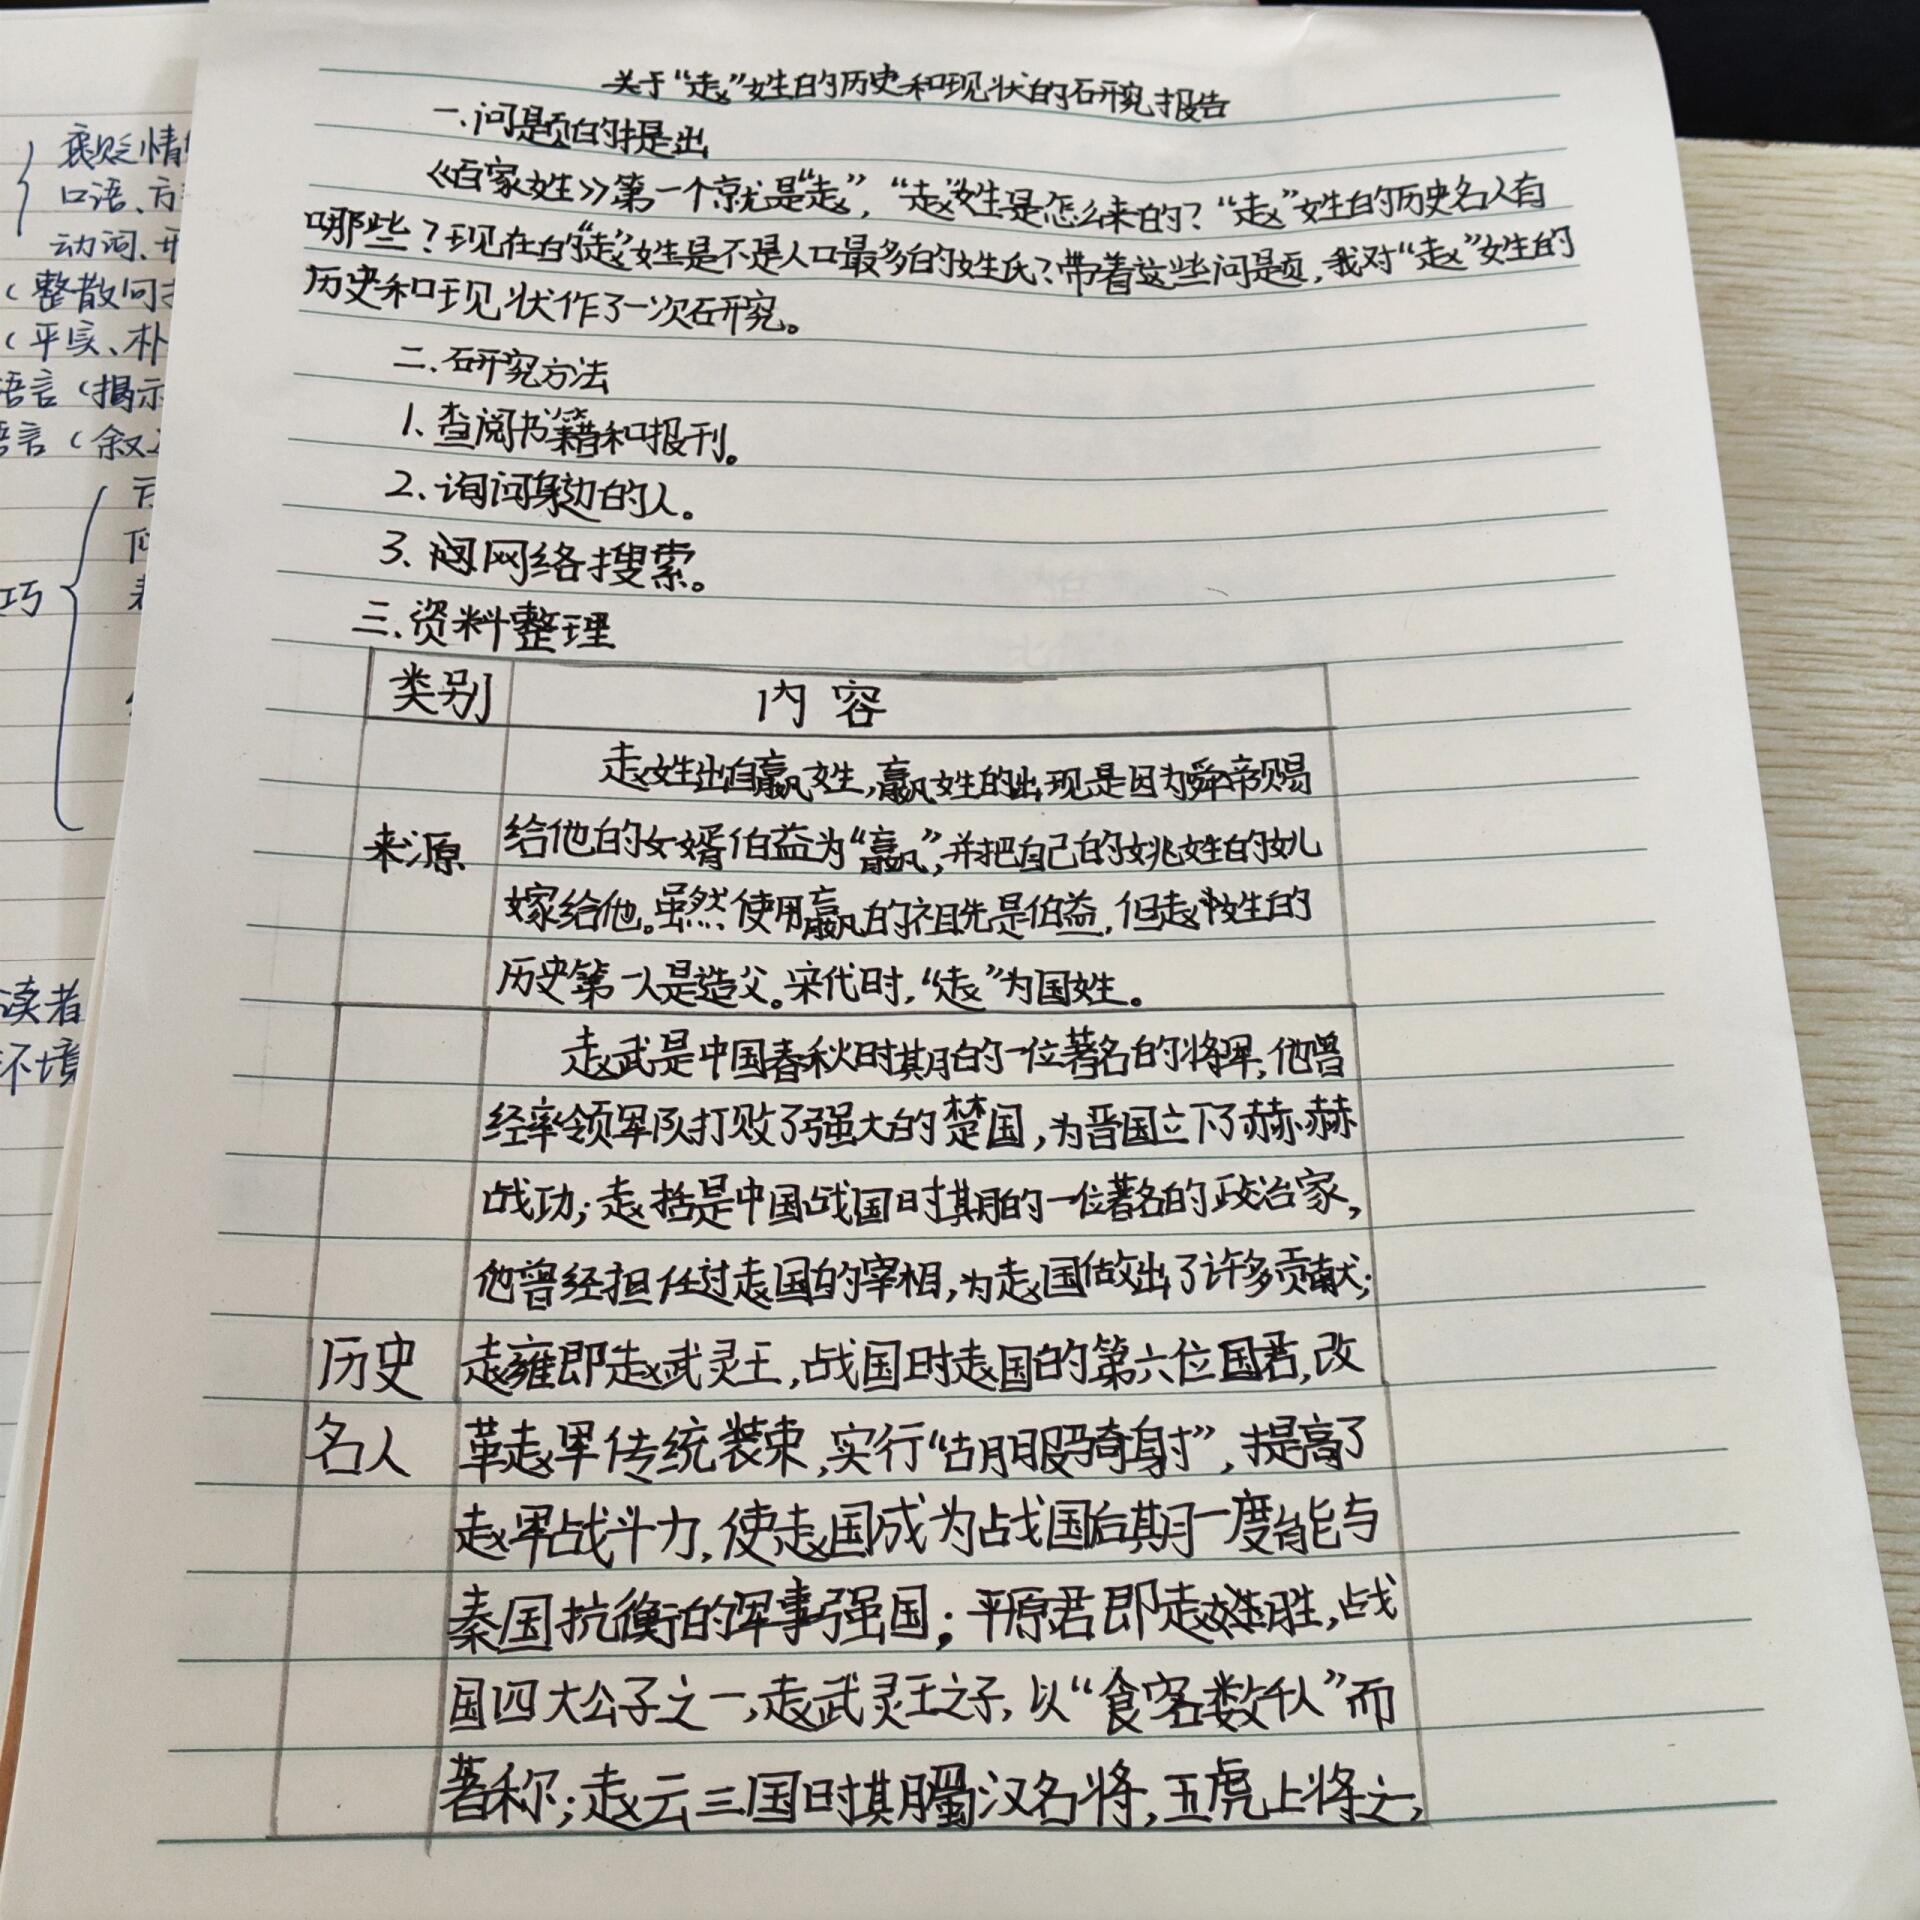 关于“赵”姓的历史和现状的研究报告
一.问题的提出
《百家姓》第一个就是“赵”,“赵”姓是怎么来的?“赵”姓的历史名人有
哪些?现在的“赵”姓是不是人口最多的姓氏?带着这些问题,我对“赵”姓的
历史和现状作了一次研究。
二.研究方法
1.查阅书籍和报刊。
2.询问身边的人。
3.网络搜索。
三.资料整理
类别 内容
赵姓出自嬴姓,嬴姓的出现是因为舜帝赐
来源 给他的女婿伯益为“嬴”,并把自己的姚姓的女儿
嫁给他。虽然使用嬴的祖先是伯益,但赵姓的
历史第一人是造父。宋代时,“赵”为国姓。
赵武是中国春秋时期的一位著名的将军,他曾
经率领军队打败了强大的楚国,为晋国立下了赫赫
战功;赵括是中国战国时期的一位著名的政治家,
他曾经担任过赵国的宰相,为赵国做出了许多贡献;
历史 赵雍即赵武灵王,战国时赵国的第六位国君,改
名人 革赵军传统装束,实行“胡服骑射”,提高了
赵军战斗力,使赵国成为战国后期一度能与
秦国抗衡的军事强国;平原君即赵胜,战
国四大公子之一,赵武灵王之子,以“食客数千人”而
著称;赵云三国时期蜀汉名将,五虎上将之,
褒贬情
口语、方
动词、形
(整散句
(平实、朴
语言(揭示
语言(叙
巧
读者
环境